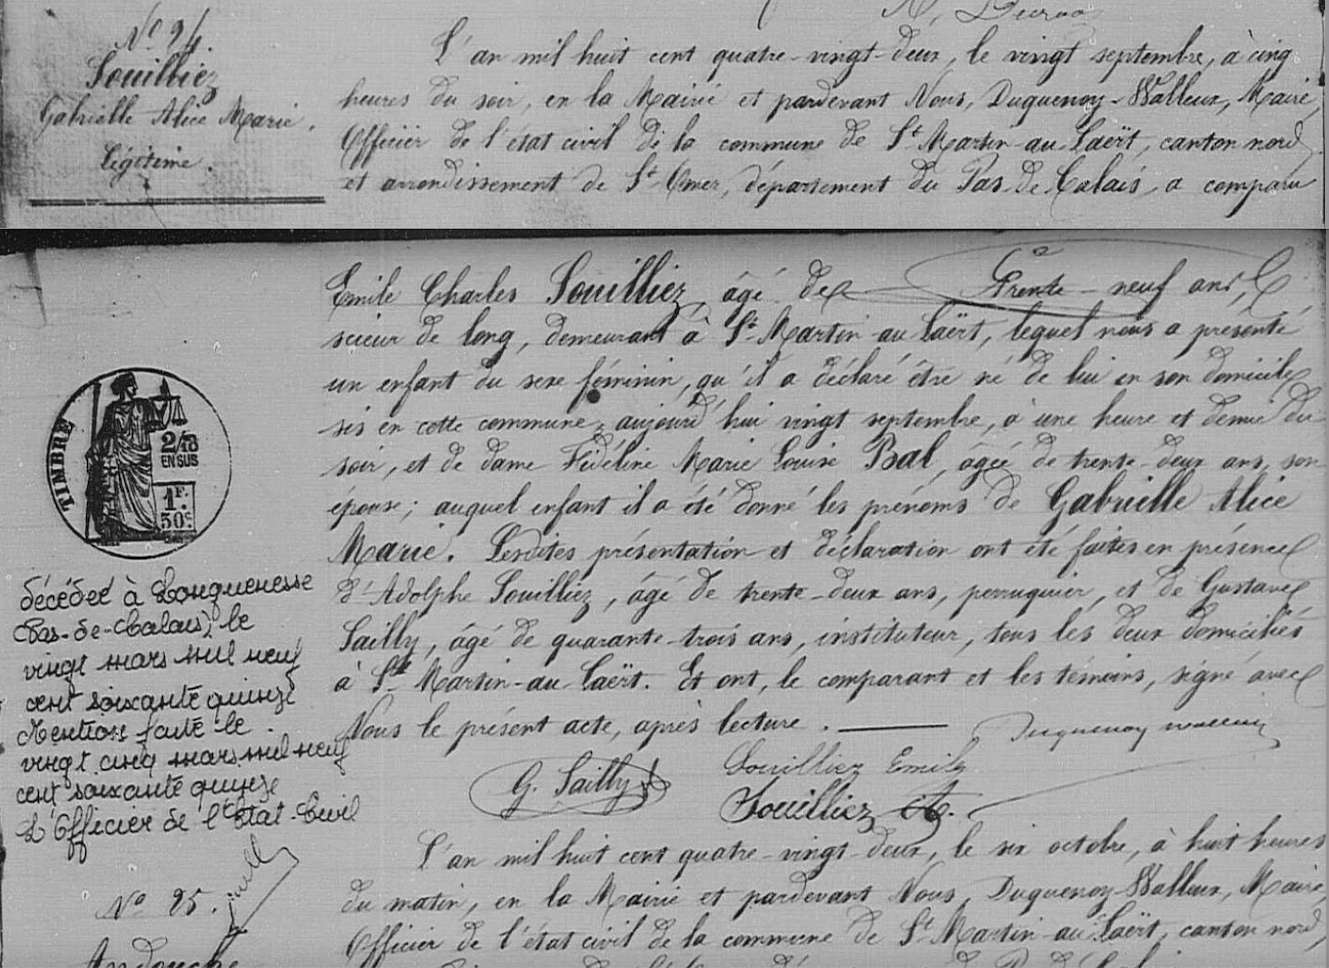 Nº 24.
Souilliez
Gabrielle Alice Marie.
légitime.
L'an mil huit cent quatre-vingt-deux, le vingt septembre, à cinq
heures du soir, en la Mairie et pardevant Nous, Duquenoy-Walleux, Maire,
Officier de l'état civil de la commune de St Martin-au-Laërt, canton nord
et arrondissement de St-Omer, département du Pas-de-Calais, a comparu
Emile Charles Souilliez, âgé de trente-neuf ans,
scieur de long, demeurant à St-Martin-au-Laërt, lequel nous a présenté
un enfant du sexe féminin, qu'il a déclaré être né de lui en son domicile
sis en cette commune, aujourd'hui vingt septembre, à une heure et demie du
soir, et de dame Fidéline Marie Louise Bal, âgée de trente-deux ans, son
épouse; auquel enfant il a été donné les prénoms de Gabrielle Alice
Marie. Lesdites présentation et déclaration ont été faites en présence
d'Adolphe Souilliez, âgé de trente-deux ans, perruquier, et de Gustave
Sailly, âgé de quarante-trois ans, instituteur, tous les deux domiciliés
à St-Martin-au-Laërt. Et ont, le comparant et les témoins, signé avec
Nous le présent acte, après lecture.
Duquenoy Walleux
G. Sailly
Souilliez Emile
Souilliez A.
TIMBRE
2/10
EN SUS
1F.
50c
décédée à Longuenesse
(Pas-de-Calais) le
vingt mars mil neuf
cent soixante quinze
Mention faite le
vingt cinq mars mil neuf
cent soixante quinze
L'Officier de l'Etat-Civil
L'an mil huit cent quatre-vingt-deux, le six octobre, à huit heures
du matin, en la Mairie et pardevant Nous, Duquenoy-Walleux, Maire,
Officier de l'état civil de la commune de St-Martin-au-Laërt, canton nord,
Nº 25.